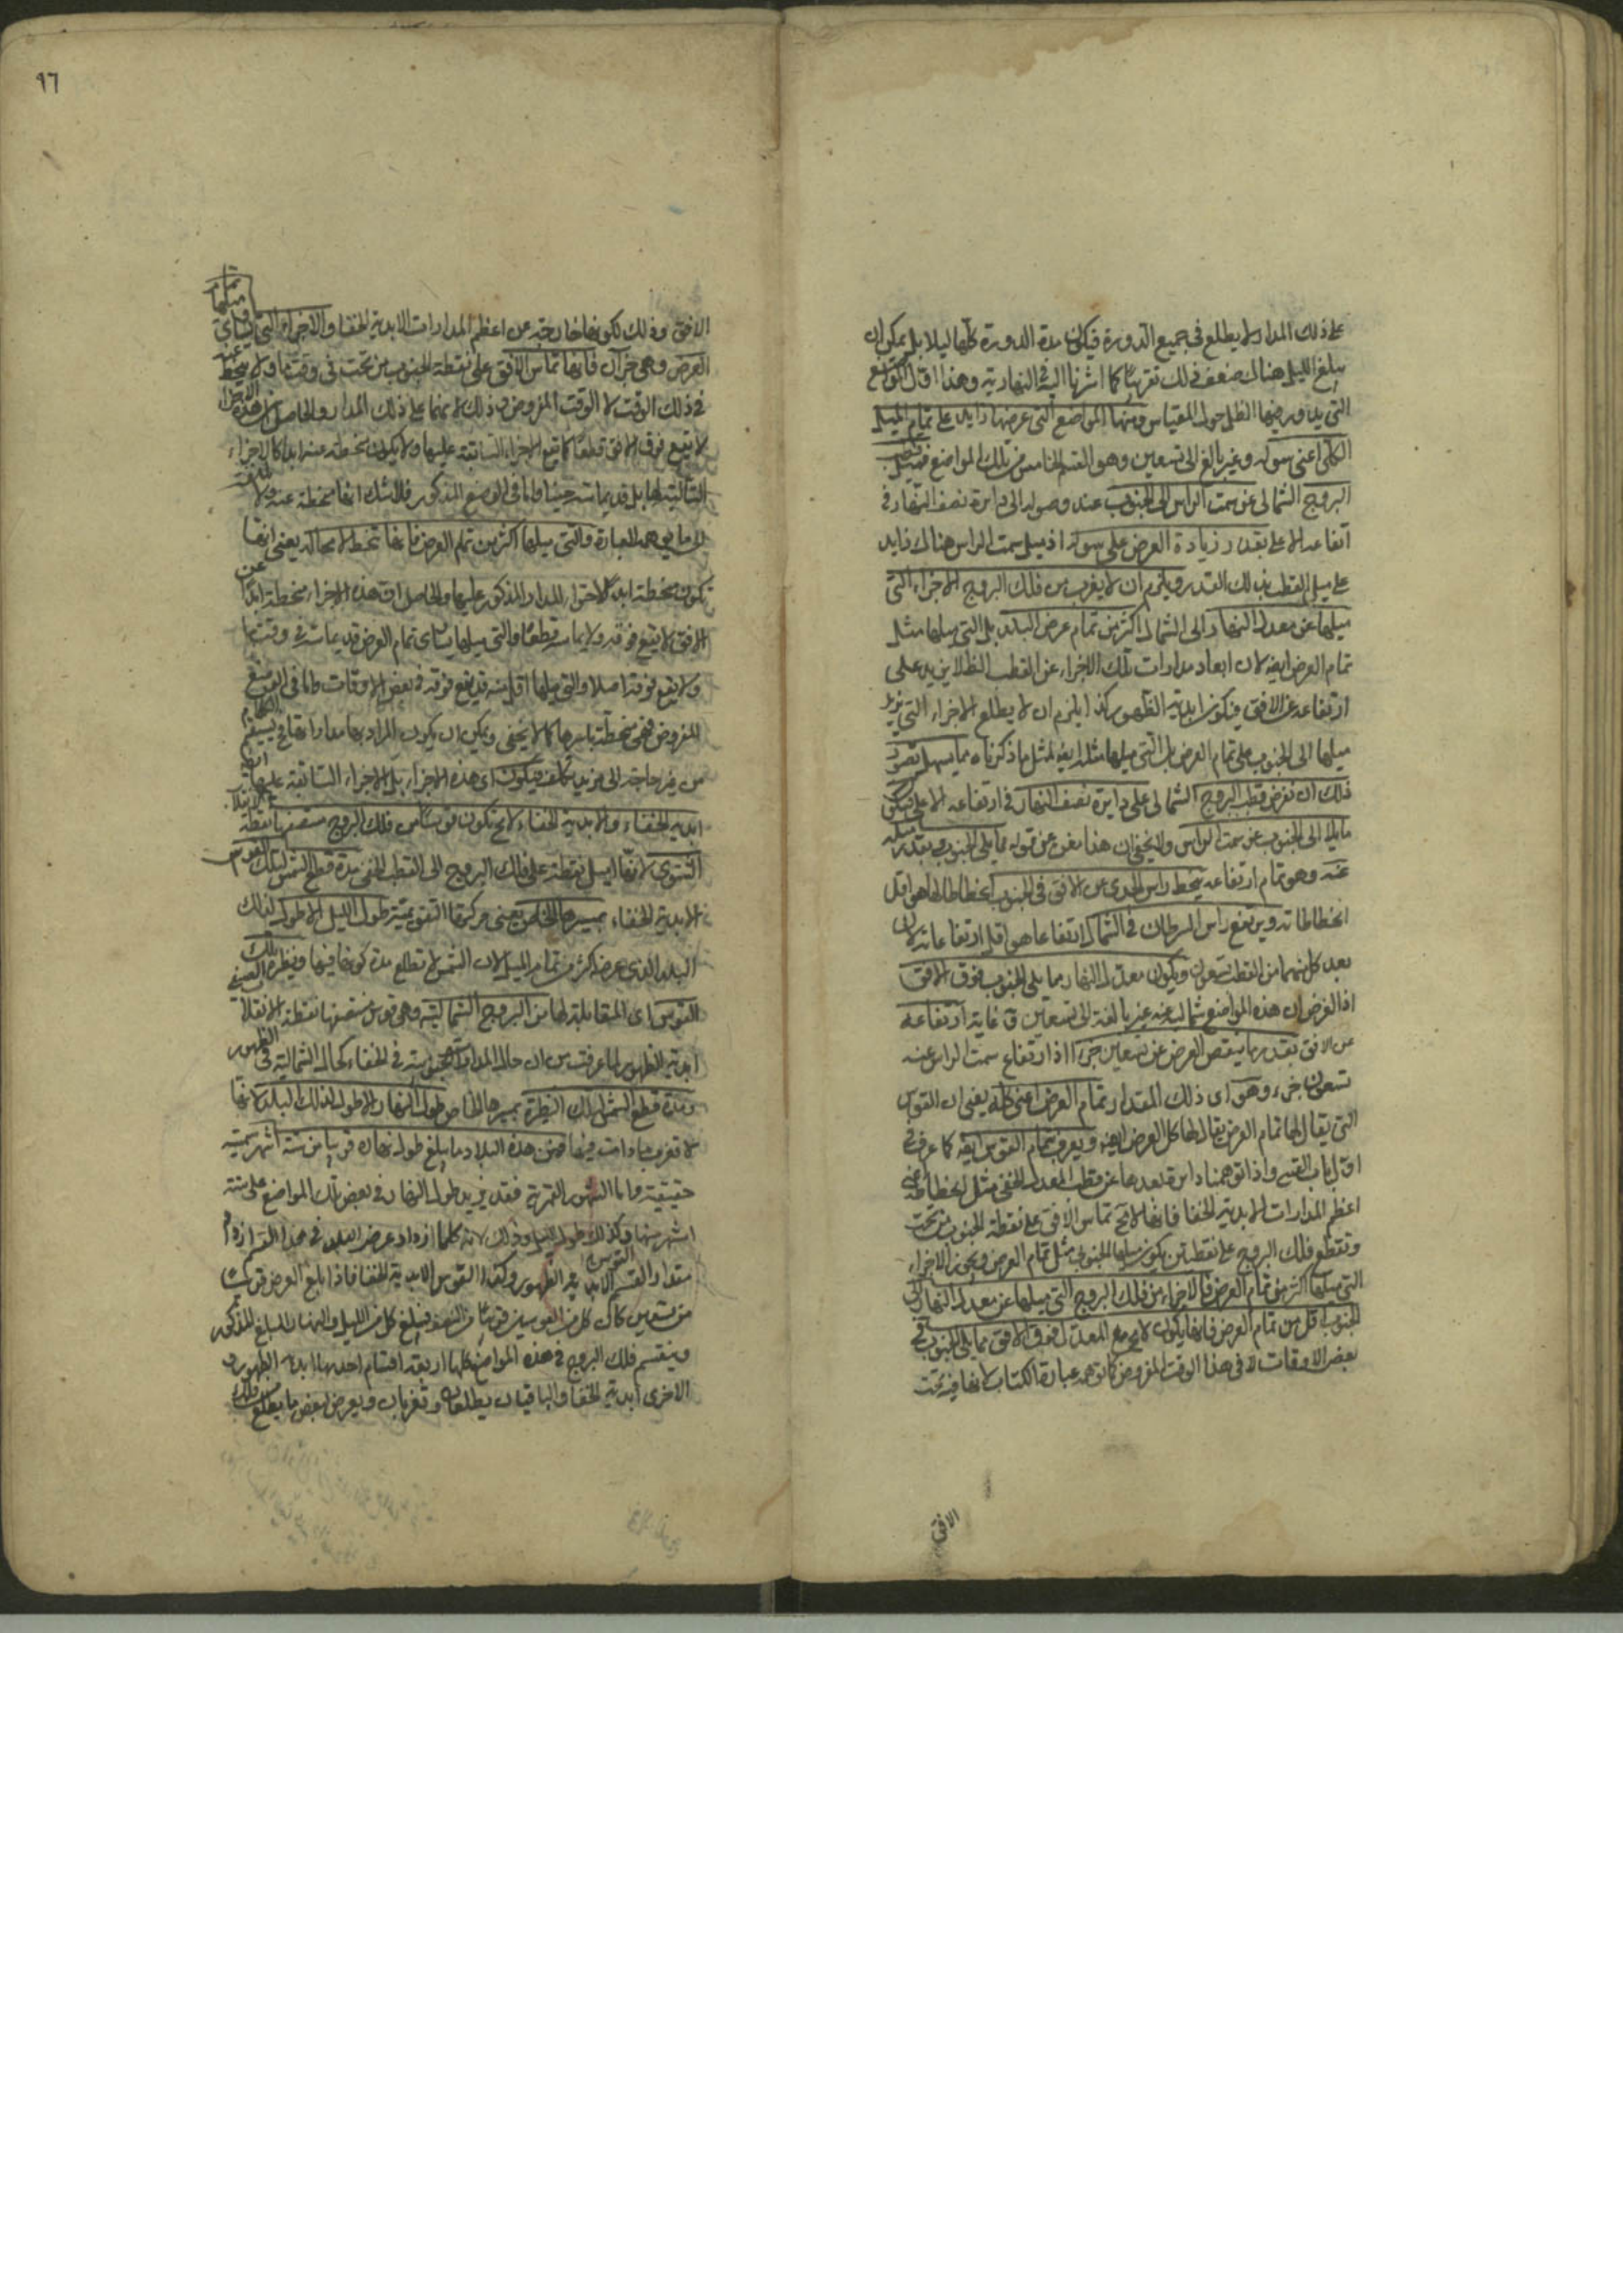 على ذلك المدار لا يطلع في جميع الدورة فيكون مدة الدورة كلها ليلا بل يمكن ان
يبلغ الليل هناك ضعف ذلك تقريبا كما اشرنا اليه في النهارية وهذا اول المواضع
التي يدور فيها الظل حول المقياس ومنها المواضع التي عرضها زايد على تمام الميل
الكلى اعنى سوله وغير بالغ الى تسعين وهو القسم الخامس من تلك المواضع فيميل قطب
البروج الشمالى عن سمت الراس الى الجنوب عند وصوله الى دايرة نصف النهار في
ارتفاعه الاعلى بقدر زيادة العرض على سوله اذ ميل سمت الراس هناك زايد
على ميل القطب بذلك القدر ويلزم ان لا يغرب من فلك البروج الاجزاء التي
ميلها عن معدل النهار الى الشمال اكثر من تمام عرض البلد بل التي ميلها مثل
تمام العرض ايضا لان ابعاد مدارات تلك الاجزاء عن القطب الظ لا يزيد على
ارتفاعه عن الافق فيكون ابدية الظهور وكذا يلزم ان لا يطلع الاجزاء التي يزيد
ميلها الى الجنوب على تمام العرض بل التي ميلها مثله ايضا لمثل ما ذكرناه مما يسهل تصور
ذلك ان نفرض قطب البروج الشمالى على دايرة نصف النهار في ارتفاعه الاعلى فيكون
مايلا الى الجنوب عن سمت الراس ولا يخفى ان هذا مغن عن قوله مما يلى الجنوب بقدر ميله
عنه وهو تمام ارتفاعه ينحط راس الجدى عن الافق في الجنوب انحطاطا ما هو اقل
انحطاطاته ويرتفع راس السرطان في الشمال ارتفاعا هو اقل ارتفاعاته لان
بعد كل منهما من القطب تسعون ويكون معدل النهار مما يلى الجنوب فوق الافق
اذ الفرض ان هذه المواضع شمالية عنه غير بالغة الى تسعين و غاية ارتفاعه
عن الافق بقدر ما ينقص العرض عن تسعين جزءا اذ ارتفاع سمت الراس عنه
تسعون جزء وهو اى ذلك المقدار تمام العرض اعنى كله يعنى ان القوس
التي يقال لها تمام العرض يقال لها كل العرض ايضا ويعرف بتمام القوس ايضا كما عرف في
اول باب القسى واذا توهمنا دايرة بعدها عن قطب المعدل الخفى مثل انحطاطه عنى
اعظم المدارات الابدية الخفا فانها لا مح تماس الافق على نقطة الجنوب من تحت
وتقطع فلك البروج على نقطتين يكون ميلها الجنوبى مثل تمام العرض ويحوز الاجزاء
التي ميلها اكثر من تمام العرض فالاجزاء من فلك البروج التي ميلها عن معدل النهار الى
الجنوب اقل من تمام العرض فانها يكون لا مح مع المعدل فوق الافق مما يلى الجنوب في
بعض الاوقات لا في هذا الوقت المفروض كما توهمه عبارة الكتاب لانها فيه تحت
الافق
٩٦
الافق وذلك لكونها خارجة عن اعظم المدارات الابدية الخفا والاجزاء التي يساوى تمام ميلها
العرض وهى جزآن فانها تماس الافق على نقطة الجنوب من تحت في وقت ما ولا ينحط عنه
في ذلك الوقت لا الوقت المفروض وذلك لا تمنها على ذلك المدار والحاصل ان هذه الاجزاء
لا يقع فوق الافق قطعا كما يقع الاجزاء السابقة عليها ولا يكون منحطة عنه ابدا كالاجزاء
التالية لها بل قد يماسه حينا واما في الوضع المذكور فلا شك انها منحطة عنه ولا
ما في هذه العبارة والتي ميلها اكثر من تمام العرض فانها تنحط لا محالة يعنى انها
تكون منحطة ابدا لاحتواء المدار المذكور عليها والحاصل ان هذه الاجزاء منحطة ابدا عن
الافق لا يقع فوقه ولا يماسه قطعا والتي ميلها يساوى تمام العرض قد يماسه في وقت ما
ولا يقع فوقه اصلا والتي ميلها اقل منه قد يقع فوقه في بعض الاوقات واما في الوضع
المفروض فهى منحطة باسرها كما لا يخفى ويمكن ان يكون المراد بها مداراتها فيستقيم الكلام
من غير حاجة الى مزيد تكلف فيكون اى هذه الاجزاء بل الاجزاء السابقة عليها ايضا
ابدية الخفاء والابدية الخفاء لا مح تكون قوسا من فلك البروج منتصفها نقطة الانقلاب
الشتوى لانها اميل نقطة على فلك البروج الى القطب الخفى مدة قطع الشمس تلك القوس
الابدية الخفاء بمسيرها الخاص يعنى حركتها التقويمية طول الليل الاطول لذلك
البلد الذى عرضه اكثر من تمام الميل لان الشمس لا تطلع مدة كونها فيها ونظيرة تلك
القوس اى المتقابلة لها من البروج الشمالية وهى قوس منتصفها نقطة الانقلاب الصيفى
ابدية الظهور لما عرفت من ان حال المدارات الجنوبية في الخفاء كحال الشمالية في الظهور
ومدة قطع الشمس تلك النظيرة بمسيرها الخاص طول النهار الاطول لذلك البلد لانها
لا تغرب مادامت فيها فمن هذه البلاد ما يبلغ طول نهاره قريبا من ستة اشهر شمسية
حقيقية واما الشهور القمرية فقد يزيد طول النهار في بعض تلك المواضع على ستة
اشهر منها وكذلك طول الليل وذلك لانه كلما ازداد عرض البلد في هذا القسم ازداد
مقدار القوس الابدية الظهور وكذا القوس الابدية الخفا فاذا بلغ العرض قريبا
من تسعين كان كل من القوسين قريبا من النصف فيبلغ كل من الليل والنهار المبلغ المذكور
وينقسم فلك البروج في هذه المواضع كلها اربعة اقسام احدها ابدية الظهور و
الاخرى ابدية الخفا والباقيان يطلعان وتغربان ويعرض لبعض ما يطلع